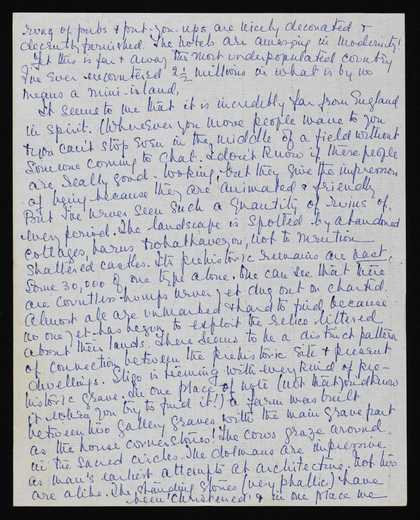 swag of pubs & put-you-ups are nicely decorated &
decently furnished. The hotels are amazing in modernity!
Yet this is far & away the most underpopulated country
I've ever encountered 2½ millions in what is by no
means a mini-island.
It seems to me that it is incredibly far from England
in spirit. Wherever you move people wave to you
& you can't stop even in the middle of a field without
someone coming to chat. I don't know if these people
are really good-looking, but they give the impression
of being because they are animated & friendly
But I've never seen such a quantity of ruins of
every period. The landscape is spotted by abandoned
cottages, barns & whathaveyou, not to mention
shattered castles. Its prehistoric remains are vast,
some 30,000 of one type alone. One can see that there
are countless humps never yet dug out or charted.
Almost all are unmarked & hard to find, because
no one yet has begun to exploit the relics littered
about their lands. There seems to be a distinct pattern
of connection between the prehistoric site & present
dwellings. Sligo is teeming with every kind of pre-
historic grave. In one place of note (not that you'd know
it when you try to find it!) a farm was built
between two gallery graves, with the main grave part
as the house cornerstones! The cows graze around
in the sacred circles. The dolmans are impressive
as man's earliest attempts at architecture. Not two
are alike. The standing stones (very phallic) have
been 'christened' & in one place we